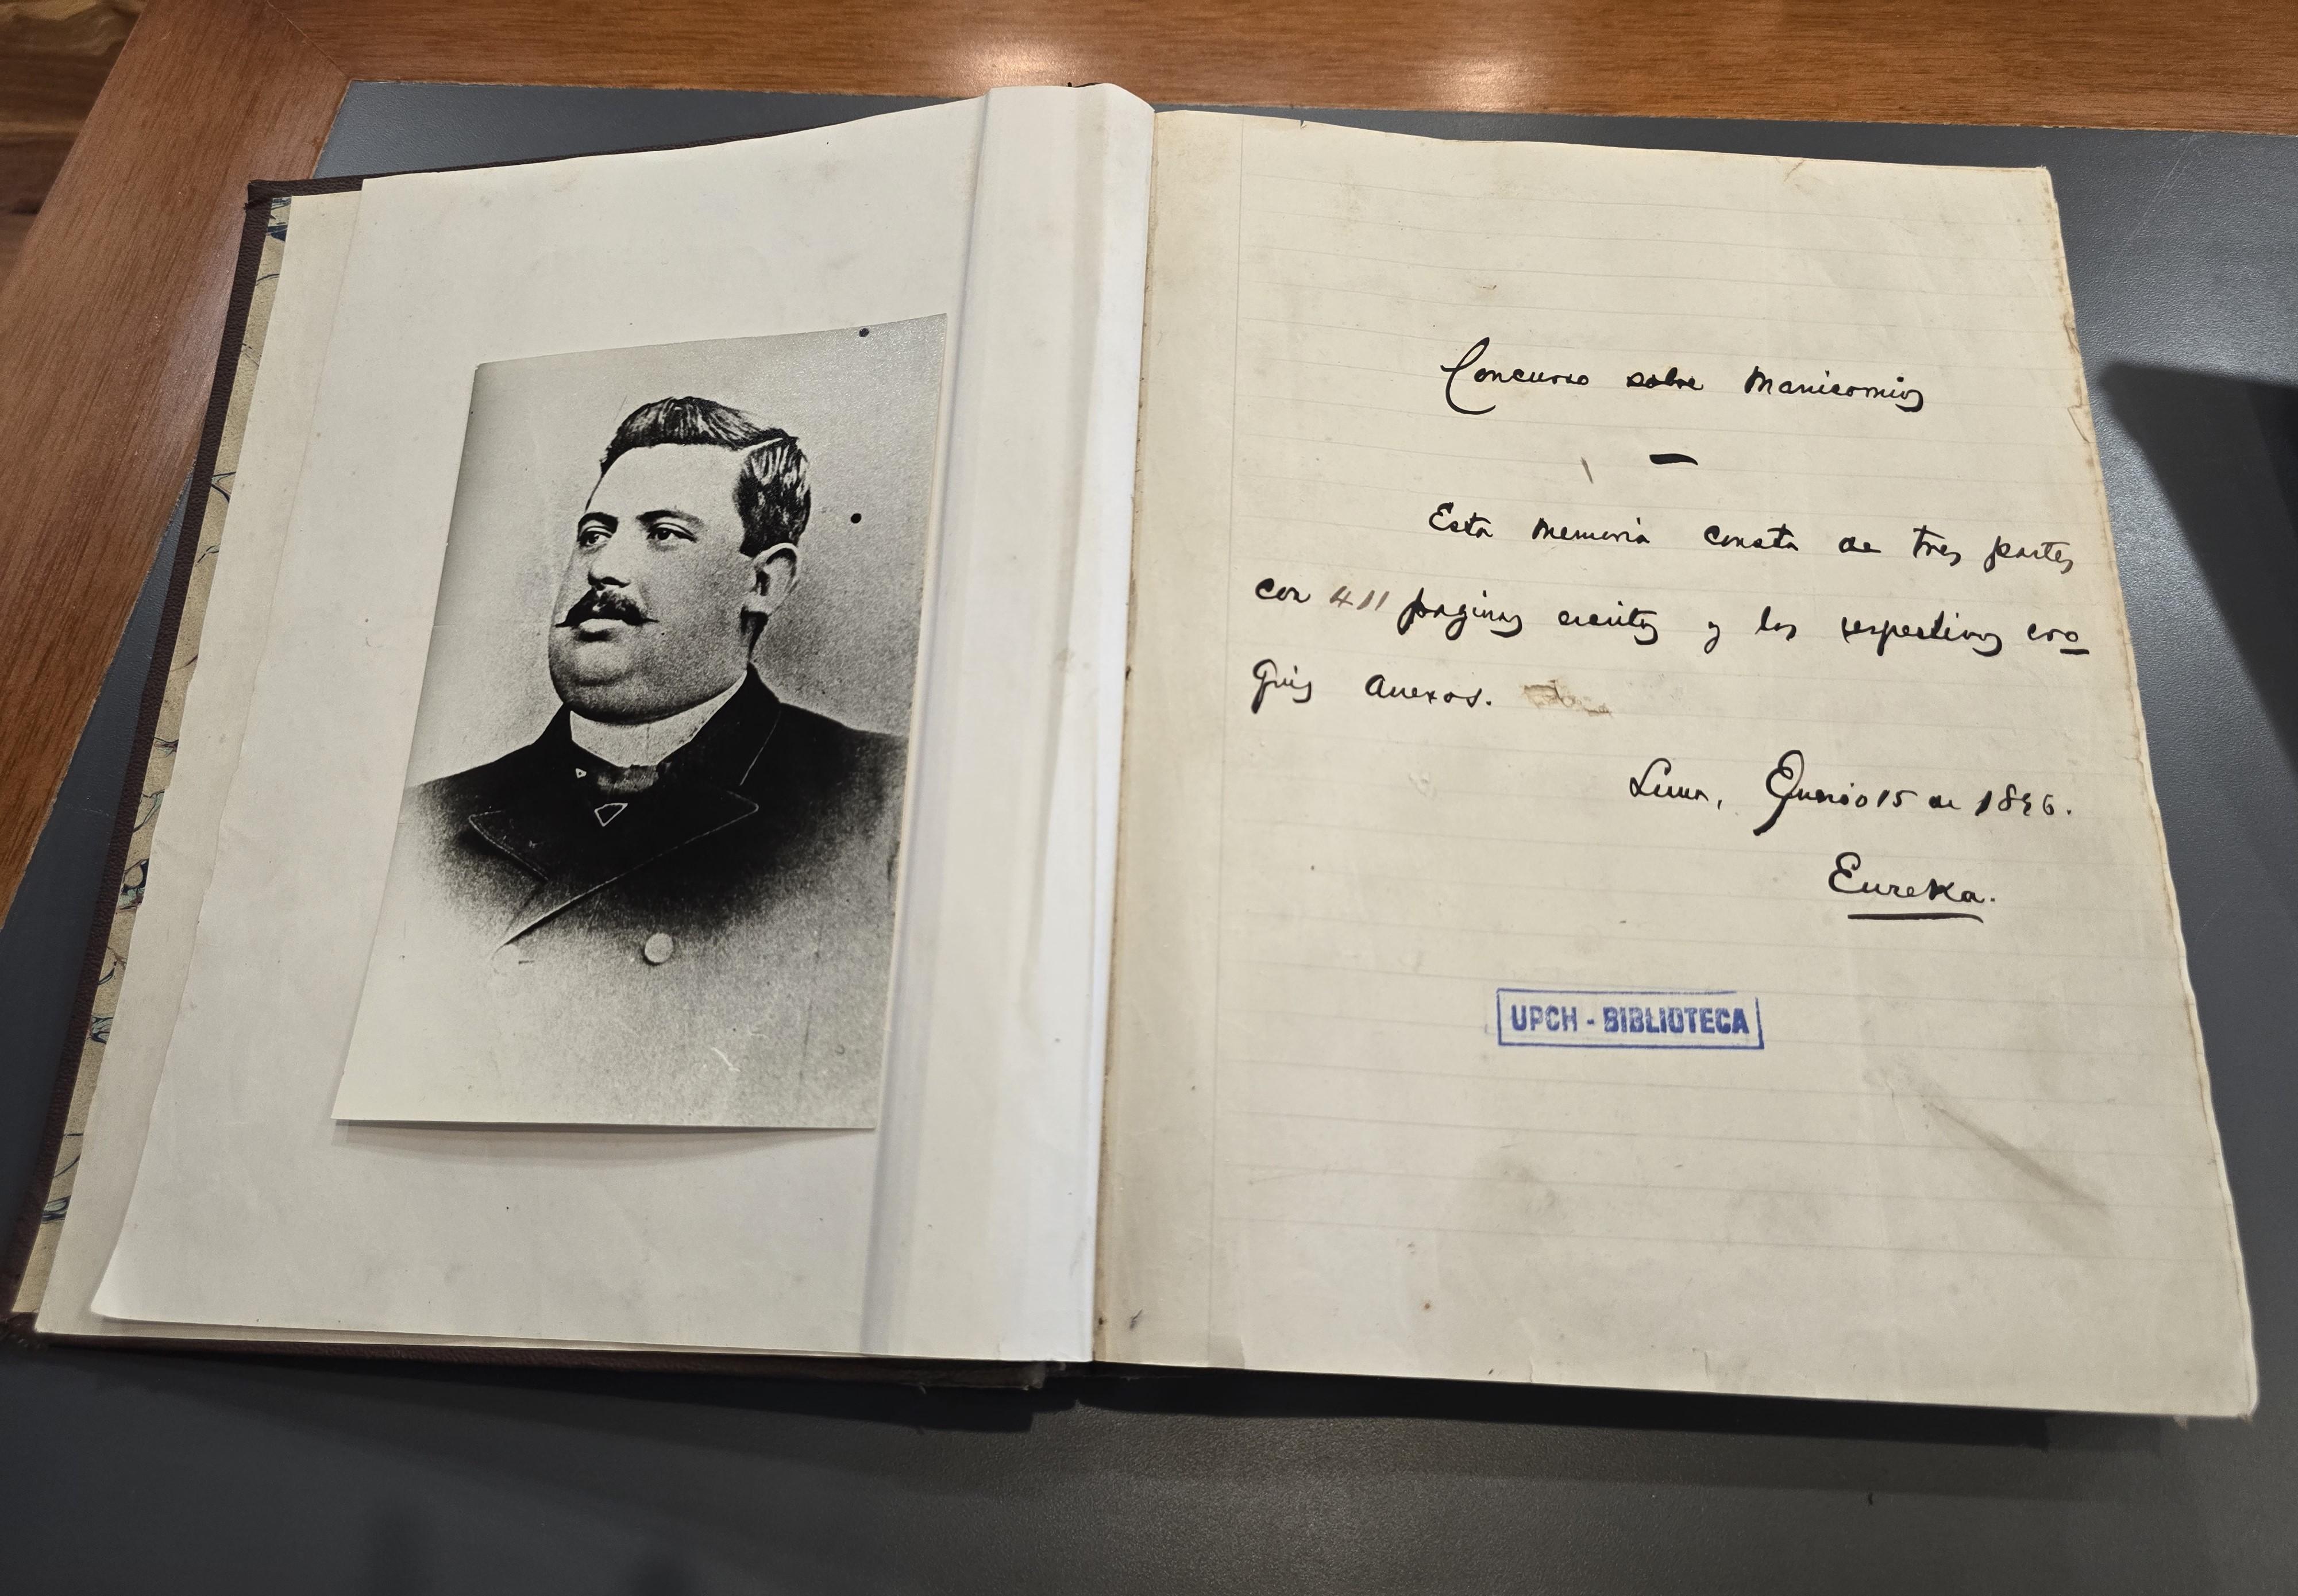 Concurso sobre Manicomios
—
Esta memoria consta de tres partes
con 411 paginas escritas y los respectivos cro
quis anexos.
Lima, Enero 15 de 1896.
Eureka.
UPCH - BIBLIOTECA